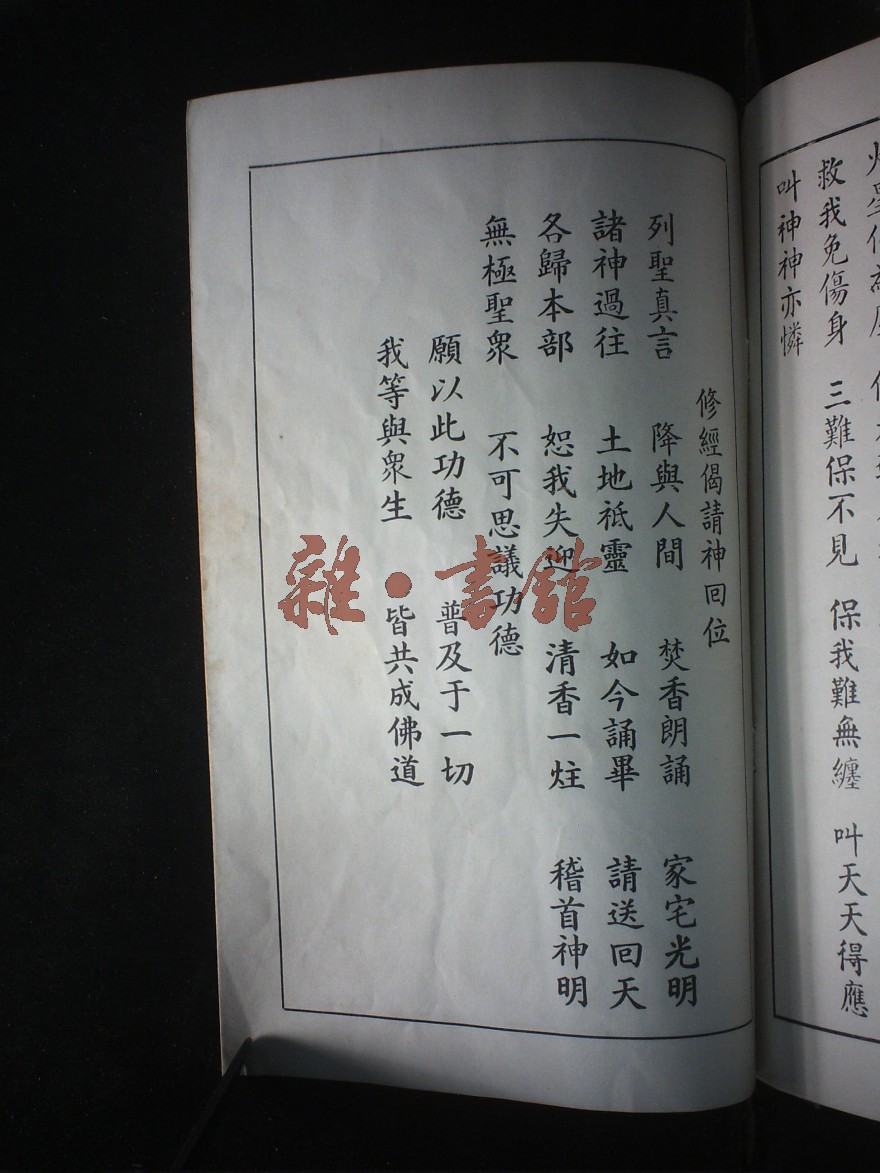 救我免傷身　三難保不見　保我難無纏　叫天天得應
叫神神亦憐
修經偈請神回位
列聖真言　降與人間　焚香朗誦　家宅光明
諸神過往　土地祇靈　如今誦畢　請送回天
各歸本部　恕我失迎　清香一炷　稽首神明
無極聖衆　不可思議功德
願以此功德　普及于一切
我等與衆生　皆共成佛道
雜·書館